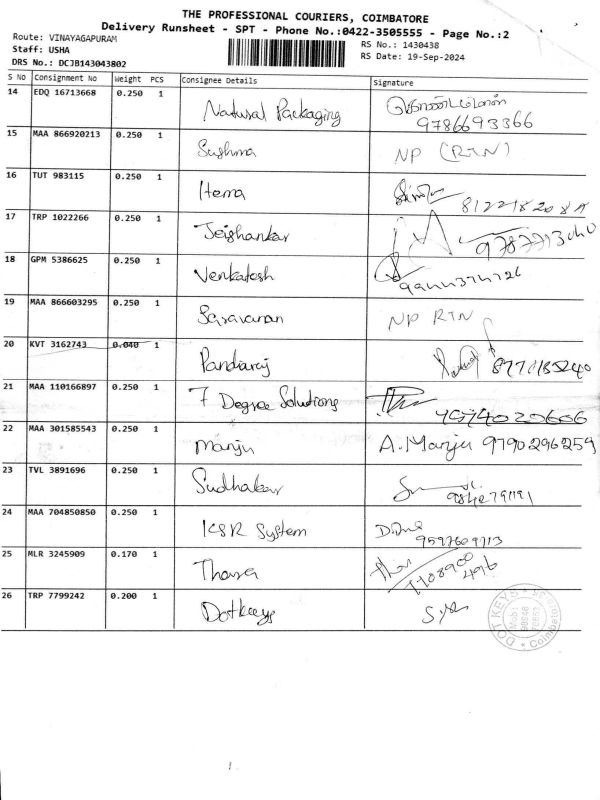 THE PROFESSIONAL COURIERS, COIMBATORE
Delivery Runsheet - SPT - Phone No.:0422-3505555 - Page No.:2
Route: VINAYAGAPURAM
Staff: USHA
DRS No.: DCJB143043802
RS No.: 1430438
RS Date: 19-Sep-2024
S No Consignment No Weight PCS Consignee Details Signature
14 EDQ 16713668 0.250 1 Natural Packaging
9786693366
15 MAA 866920213 0.250 1 Sushma NP (RTN)
16 TUT 983115 0.250 1 Hema
17 TRP 1022266 0.250 1 Jeishankar
18 GPM 5386625 0.250 1 Venkatesh
19 MAA 866603295 0.250 1 Saravanan NP RTN
20 KVT 3162743 0.040 1 Pandiaraj
21 MAA 110166897 0.250 1 7 Degree Solutions
22 MAA 301585543 0.250 1 Manju A. Manju 9790296259
23 TVL 3891696 0.250 1 Sudhakar
24 MAA 704850850 0.250 1 KSR System
9597609713
25 MLR 3245909 0.170 1 Thara
26 TRP 7799242 0.200 1 Dotkeys
DOT KEYS
Coimbatore